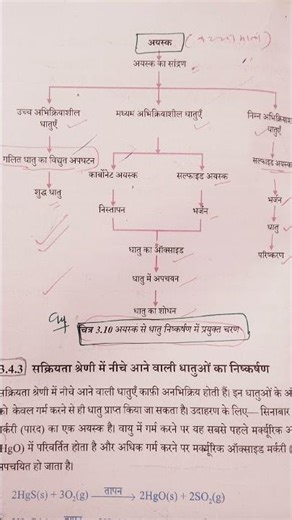 अयस्क
अयस्क का सांद्रण
उच्च अभिक्रियाशील धातुएँ
मध्यम अभिक्रियाशील धातुएँ
निम्न अभिक्रिया
धातुएँ
गलित धातु का विद्युत अपघटन
कार्बोनेट अयस्क
सल्फाइड अयस्क
सल्फाइड अयस्क
शुद्ध धातु
निस्तापन
भर्जन
भर्जन
धातु
धातु का ऑक्साइड
परिष्करण
धातु में अपचयन
धातु का शोधन
चित्र 3.10 अयस्क से धातु निष्कर्षण में प्रयुक्त चरण
3.4.3 सक्रियता श्रेणी में नीचे आने वाली धातुओं का निष्कर्षण
सक्रियता श्रेणी में नीचे आने वाली धातुएँ काफ़ी अनभिक्रिय होती हैं। इन धातुओं के
को केवल गर्म करने से ही धातु प्राप्त किया जा सकता है। उदाहरण के लिए— सिनाबार
र्करी (पारद) का एक अयस्क है। वायु में गर्म करने पर यह सबसे पहले मर्क्यूरिक
HgO) में परिवर्तित होता है और अधिक गर्म करने पर मर्क्यूरिक ऑक्साइड मर्करी
पचयित हो जाता है।
2HgS(s) + 3O₂(g) तापन → 2HgO(s) + 2SO₂(g)